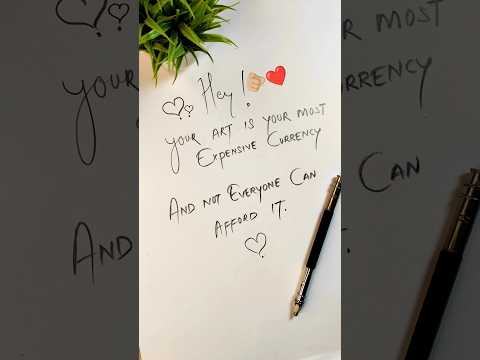 Hey!
YOUR ART IS YOUR MOST
EXPENSIVE CURRENCY
AND NOT EVERYONE CAN
AFFORD IT.